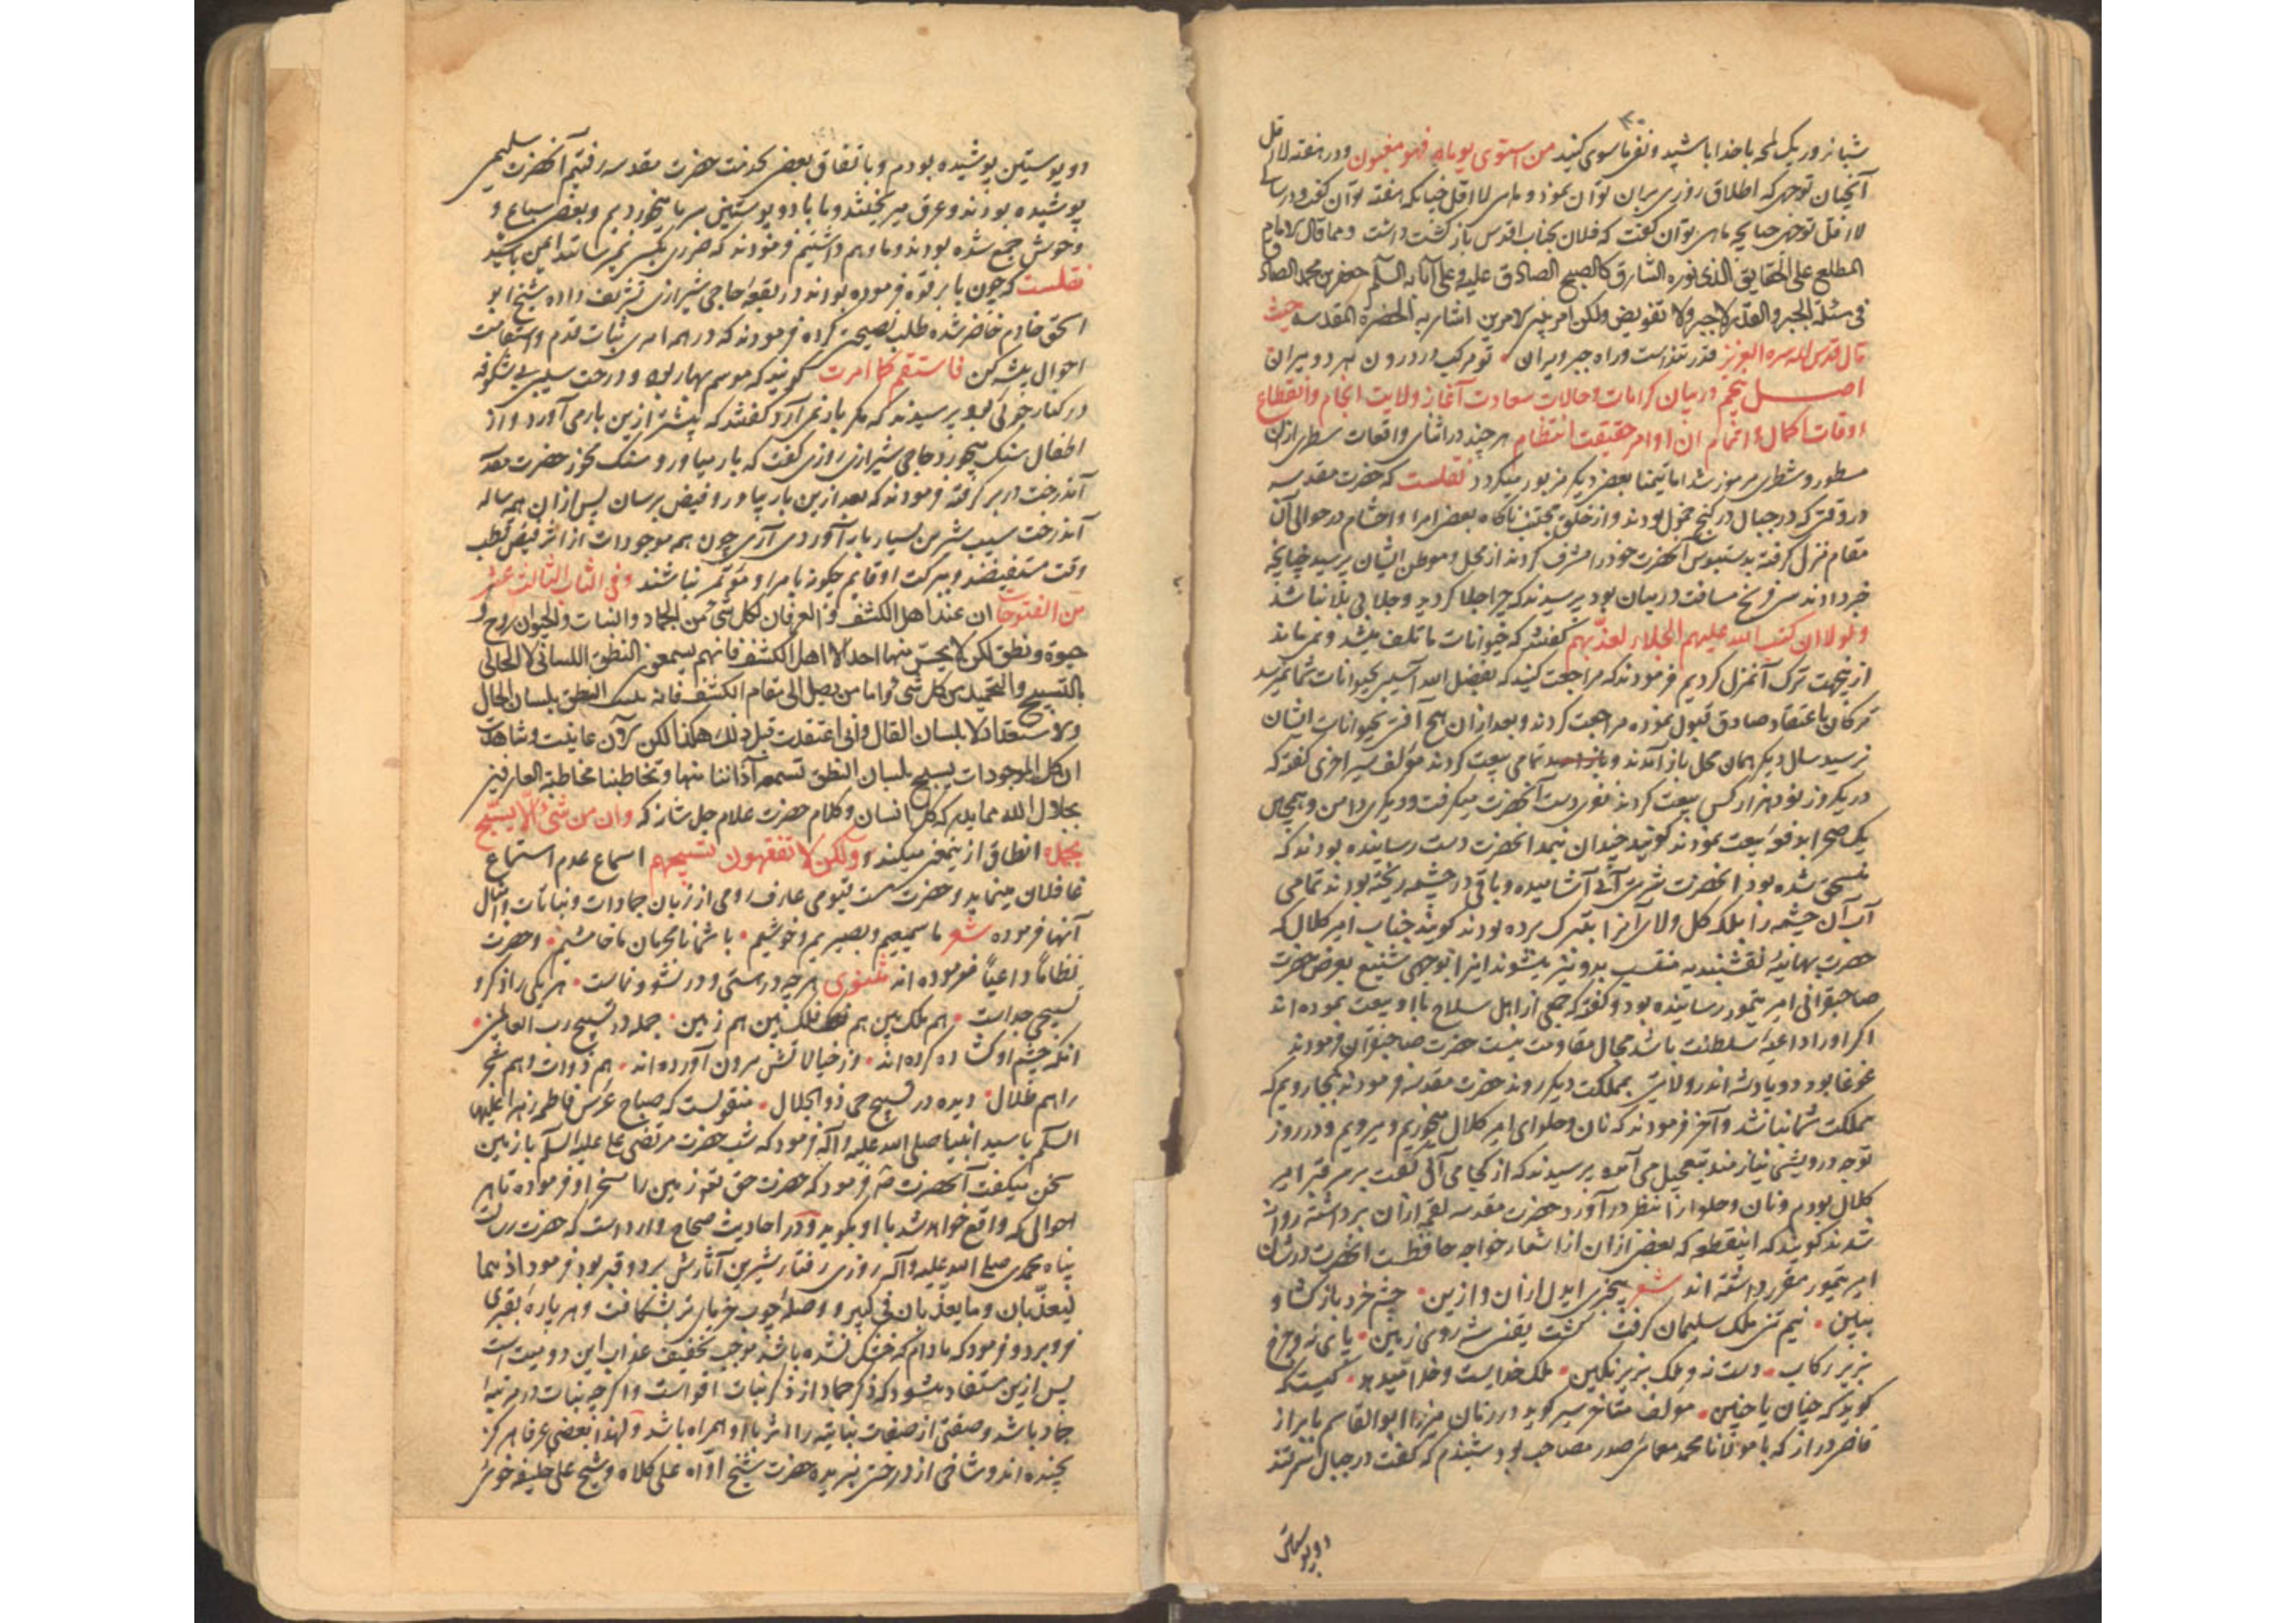 شبانروز یک لمحه باخدا باشید و نفی ماسوی کنید من استوی یوماه فهو مغبون و در هفته لااقل
آنچنان توجهی که اطلاق روزی بران توان نمود و ماهی لااقل چنانکه هفته توان گفت و در سالی
لااقل توجهی چنانچه ماهی توان گفت که فلان بجناب اقدس بازگشت داشت و مما قال الامام
المطلع علی الحقایق الذی نوره الشارق کالصبح الصادق علیه و علی آبائه السلم جعفر بن محمد الصادق
فی مسئلة الجبر و القدر لا جبر و لا تفویض ولکن امر بین الامرین اشار به الحضرة المقدسه حیث
قال قدس الله سره العزیز قدر تنذاست وراه جبر ویران • تو مرکب در درون بهر دو میران
اصل پنجم در بیان کرامات و حالات سعادت آغاز ولایت انجام و انقطاع
اوقات اکمال و اتمام ان اوامر حقیقت انتظام هر چند در اثنای واقعات سطری ازان
مسطور و شطری مرموز شد اما تیمنا بعضی دیگر مزبور میگردد نقلست که حضرت مقدسه
در وقتی که در جبال در کنج خمول بودند و از خلق مجتنب ناگاه بعضی امرا و احشام در حوالی آن
مقام نزل گرفته بدستبوس آنحضرت خود را مشرف کردند از محل و موطن ایشان پرسید چنانچه
خبر دادند سی فرسخ مسافت در میان بود پرسیدند که چرا جلا کردید و جلا بی بلا نباشد
و لولا ان کتب الله علیهم الجلاء لعذبهم گفتند که حیوانات ما تلف میشد و نمی ماند
ازینجهت ترک آنمنزل کردیم فرمودند که مراجعت کنید که بفضل الله آسیبی بحیوانات شما نمیرسد
ترکان باعتقاد صادق قبول نموده مراجعت کردند و بعد ازان هیچ آفتی بحیوانات ایشان
نرسید سال دیگر همان محل باز آمدند و تمامی بیعت کردند مؤلف سیر اخری گفته که
در یکروز نود هزار کس بیعت کردند نفری دست آنحضرت میگرفت و دیگری دامن و همچنان
یک صحرا بدفعه بیعت نمودند گویند چندان بنمد انحضرت دست رسانیده بودند که
منسحق شده بود انحضرت شربت آبی آشامیده و باقی در چشمه ریخته بودند تمامی
آب آن چشمه را بلکه گل و لای آنرا بتبرک برده بودند گویند جناب امیر کلال که
حضرت بهائیه نقشبندیه منتسب بدو نیز میشوند اینرا بوجهی شنیع بعرض حضرت
صاحبقرانی امیر تیمور رسانیده بود و گفته که جمعی از اهل سلاح با او بیعت نموده اند
اگر او را داعیه سلطنت باشد مجال مقاومت نیست حضرت صاحبقران فرمودند
غوغا بود دو پادشه اندر ولایتی بمملکت دیگر روند حضرت مقدسه فرمودند بجا رویم که
مملکت شما نباشد و آخر فرمودند که نان و حلوای امیر کلال میخوریم و میرویم و در روز
توجه درویشی نیازمند بتعجیل می آمده پرسیدند که از کجا می آئی گفت بر سر قبر امیر
کلال بودم و نان و حلوا از انتظر در آورد حضرت مقدسه لقمه ازان برداشته روان
شدند گویند که اینقطعه که بعضی ازان از اشعار خواجه حافظست انحضرت در شان
امیر تیمور مقرر داشته اند شعر بیخبری ایدل ازان و ازین • چشم خرد باز کشا و
ببین • نیم تنی ملک سلیمان گرفت کشت یقین شه روی زمین • پای نه و چرخ
بزیر رکاب • دست نه و ملک بزیر نگین • ملک خدایست و خدا میدهد • کیست که
گوید که چنان یا چنین • مؤلف متاخر سیر گوید در زمان میرزا ابوالقاسم بابر از
قاضی دراز که با مولانا محمد معمائی صدر مصاحب بود شنیدم که گفت در جبال سمرقند
دو پوستین
دو پوستین پوشیده بودم و باتفاق بعضی بخدمت حضرت مقدسه رفتیم آنحضرت سلیمی
پوشیده بودند و عرق میریختند و ما با دو پوستین سرما میخوردیم و بعضی سباع و
وحوش جمع شده بودند و ما وهم داشتیم فرمودند که ضرری بکس نمیرسانند ایمن باشید
نقلست که چون بابرقوه فرموده بودند در بقعه حاجی شیرازی تشریف داده شیخ ابو
اسحق خادم حاضر شده طلب نصیحتی کرده فرمودند که در همه امری ثبات قدم و استقامت
احوال پیشه کن فاستقم کما امرت گویند که موسم بهار بود و درخت سیبی بی شکوفه
در کنار حوض بود پرسیدند که مگر بار نمی آرد گفتند که پیشتر ازین بار می آورد و از
اطفال سنگ میخورد حاجی شیرازی روزی گفت که بار میاور و سنگ مخور حضرت مقدسه
آندرخت در بر گرفته فرمودند که بعد ازین بار بیاور و فیض برسان پس ازان همه ساله
آندرخت سیب شیرین بسیار بار آوردی آری چون همه موجودات از اثر فیض قطب
وقت مستفیضند و ببرکت او قایم چگونه بامر او مؤتمر نباشند و فی الباب الثالث عشر
من الفتوحات ان عند اهل الکشف و العرفان لکل شی من الجماد و النبات و الحیوان روح و
حیوة و نطق لکن لا یحس منها احد الا اهل الکشف فانهم یسمعون النطق اللسانی لا الحالی
بالتسبیح و التحمید من کل شی و اما من یصل الی مقام الکشف فانه النطق بلسان الحال
و الاستعداد لا بلسان القال و انی اعتقدت قبل ذلک هکذا لکن الآن عاینت و شاهدت
ان کل الموجودات یسبح بلسان النطق تسمعه آذاننا منها و تخاطبنا مخاطبة العارفین
بجلال الله مما یدرکه کل انسان و کلام حضرت علام جل شانه که و ان من شی الا یسبح
بحمده انطاق ازینمعنی میکند و ولکن لا تفقهون تسبیحهم اسماع عدم استماع
غافلان مینماید و حضرت قیومی عارف رومی از زبان جمادات و نباتات و امثال
آنها فرموده شعر ما سمیعیم و بصیریم و خوشیم • با شما نامحرمان ما خامشیم • و حضرت
نظاماً داعیاً فرموده اند مثنوی هر چه در هستی و در نشو و نماست • هر یکی را ذکر و
تسبیحی جداست • هم ملک بین هم فلک بین هم زمین • جمله در تسبیح رب العالمین •
انکه چشم او کشاده کرده اند • از خیالاتش برون آورده اند • هم ذوات و هم شجر
را هم ظلال • دیده در تسبیح حی ذو الجلال • منقولست که صباح عرس فاطمه زهرا علیها
السلم با سید انبیا صلی الله علیه و آله فرمود که شب حضرت مرتضی علی علیه السلم با زمین
سخن میگفت آنحضرت فرمود که حضرت حق تعه زمین را مسخر او فرموده تا هر
احوالی که واقع خواهد شد با او بگوید و در احادیث صحاح وارد است که حضرت رسالت
پناه محمدی صلی الله علیه و آله روزی رفتار شیرین آثارش بر دو قبر بود فرمود انهما
لیعذبان و ما یعذبان فی کبیر و وصله چوب خرمای تر بشکافت و هر پاره بقبری
فرو برد و فرمود که مادام که خشک نشده باشد موجب تخفیف عذاب این دو میت است
پس ازین مستفاد میشود که ذکر جماد از ذکر نبات اقواست و اگر چه نبات در مرتبه
جماد باشد و صفتی از صفات نباتیه را اثر با او همراه باشد و لهذا بعضی عرفا هرگز
نچیده اند و شاخی از درختی نبریده حضرت شیخ آواه علی کلاه و شیخ علی خلیفه خوش